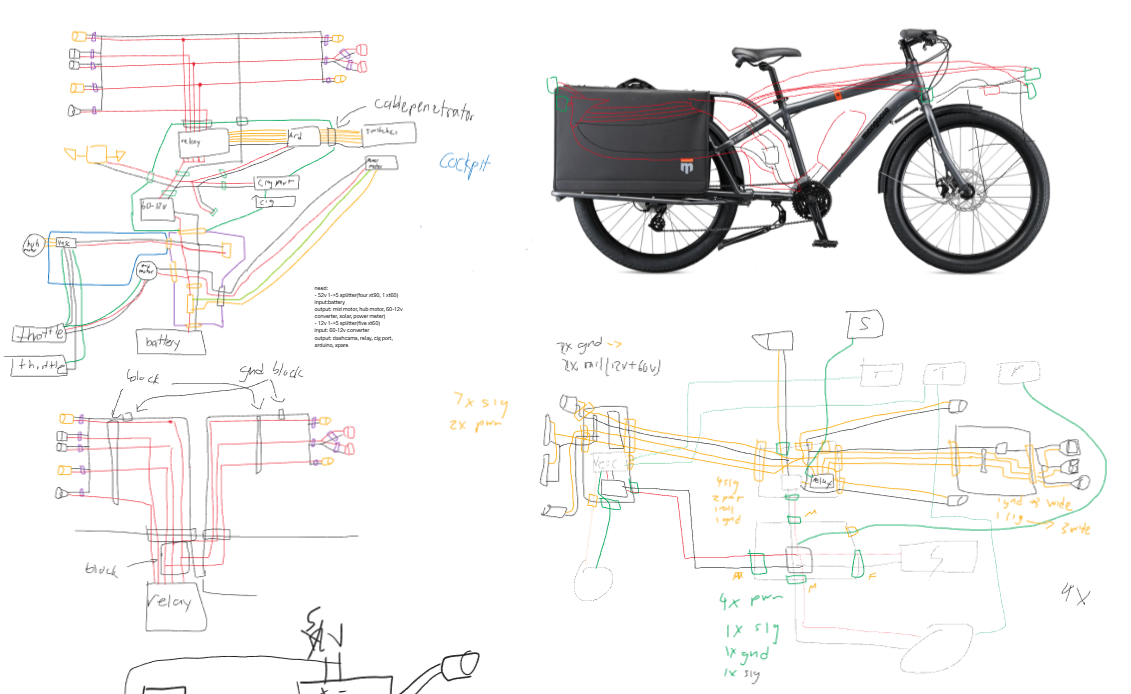 cablepenetrator
relay
ard
switches
Cockpit
power
meter
cig port
cig
60-12v
hub
motor
vesc
mid
motor
throttle
throttle
battery
need:
- 52v 1->5 splitter(four xt90, 1 xt60)
input:battery
output: mid motor, hub motor, 60-12v
converter, solar, power meter)
- 12v 1->5 splitter(five xt60)
input: 60-12v converter
output: dashcams, relay, cig port,
arduino, spare
block
gnd block
block
relay
7x sig
2x pwn
2x gnd ->
2x rail(12v+60v)
S
T
T
P
vesc
relay
4 sig
2 pwr
1 gnd
1 gnd 
1 sig -> 3 wide
M
M
F
S
4x pwn
1x sig
1x gnd
1x sig
4x